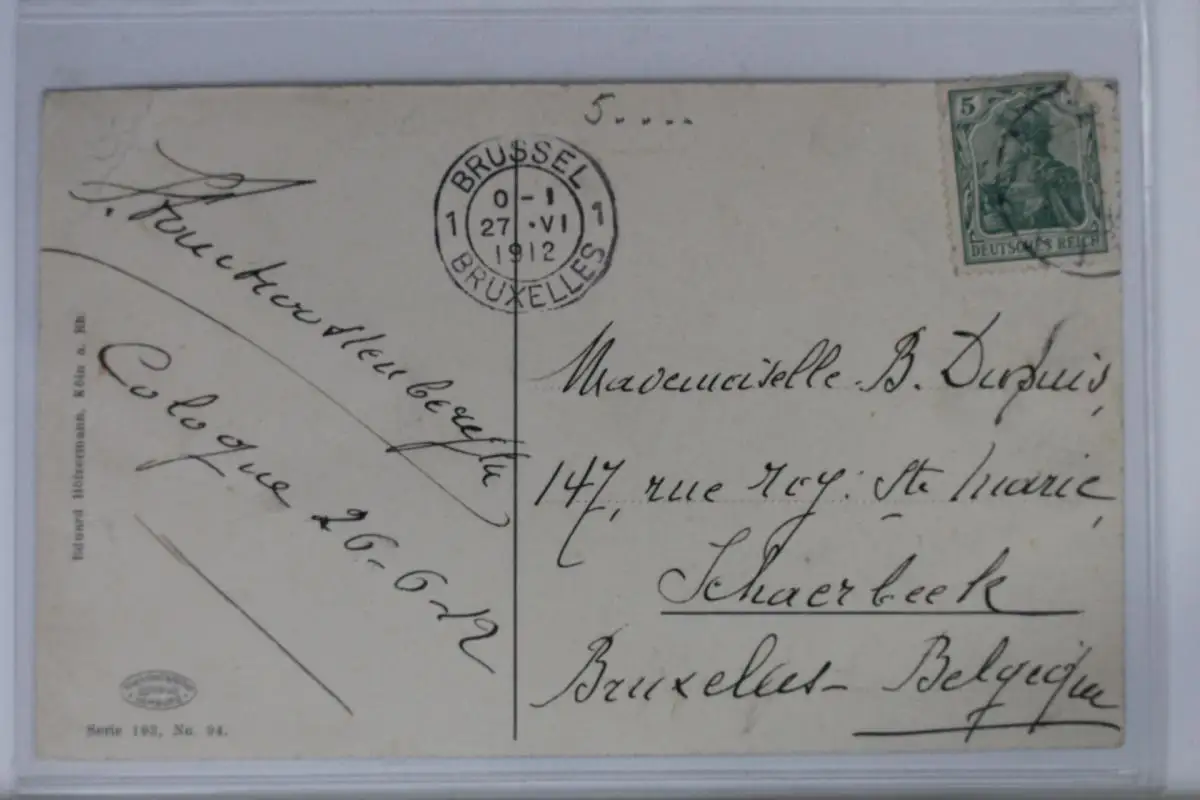 5.....
BRUSSEL
1 1
0-1
27 ·VI
1912
BRUXELLES
5
DEUTSCHES REICH
Cologne 26-6-12
Mademoiselle B. Dupuis,
147, rue Roy: Ste Marie,
Schaerbeek
Bruxelles - Belgique
Eduard Hölzermann, Köln a. Rh.
Serie 193, No. 94.